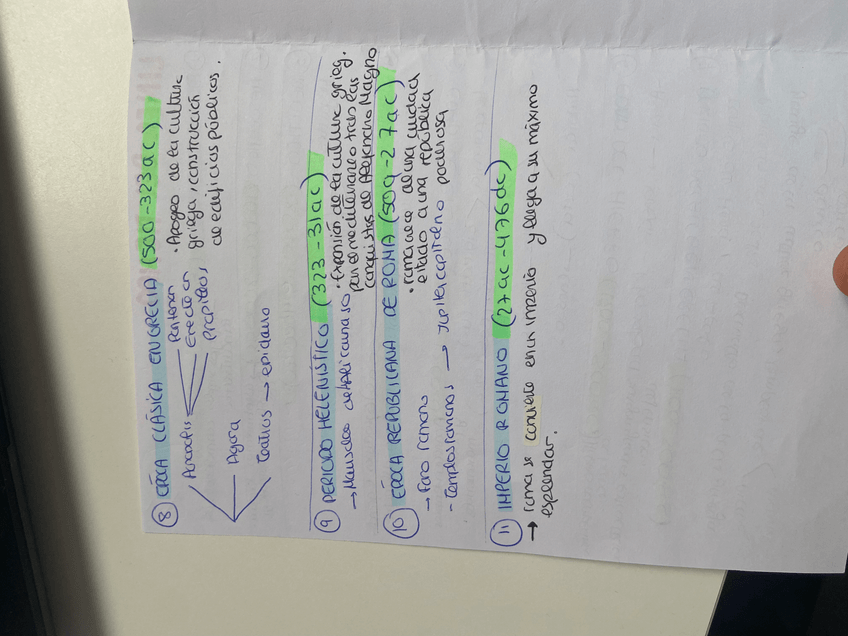 ⑧ ÉPOCA CLÁSICA EN GRECIA (500-323 ac)
Acrópolis
Partenon
Erecteón
propileos
· Apogeo de la cultura
griega, construcción
de edificios públicos.
Agora
teatros → epidauro
⑨ PERIODO HELENÍSTICO (323-31 ac)
→ Mausoleo de halicarnaso
· Expansión de la cultura grieg.
por el mediterraneo tras las
conquistas de Alejandro Magno
⑩ ÉPOCA REPUBLICANA DE ROMA (509-27 ac)
→ Foro romano
- templos romanos → Jupiter capitolino
· roma nace de una ciudad
estado a una república
poderosa
⑪ IMPERIO ROMANO (27 ac-476 dc)
→ roma se convierte en un imperio y llega a su máximo
esplendor.